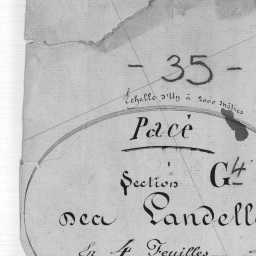 - 35 -
Echelle d'Un à 2000 mètres
Pacé
Section G4
des Landell
En 4 Feuilles